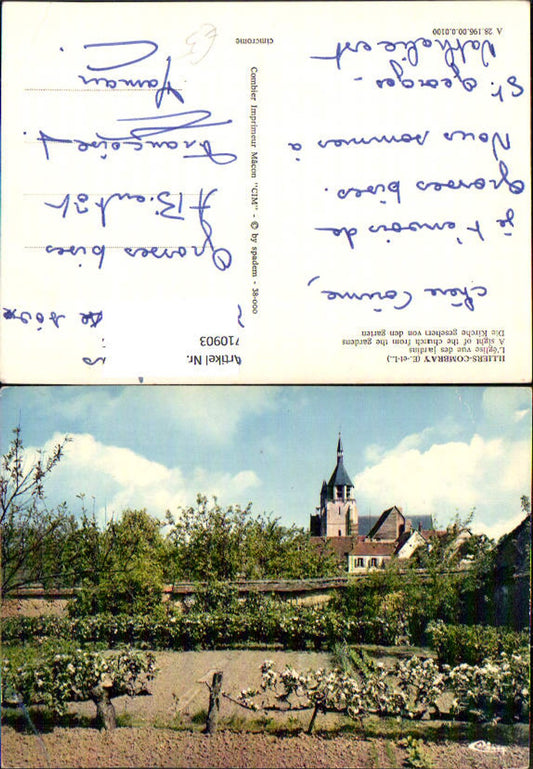 ILLIERS-COMBRAY (E.-et-L.)
L'église vue des jardins
A sight of the church from the gardens
Die Kirche gesehen von den garten
chère Corinne,
je t'envois de
grosses bises.
Nous sommes à
St Georges -
Nathalie est
A 28.196.00.0.0100
Combier Imprimeur Mâcon "CIM" - © by spadem - 38-000
cimcrome
Artikel Nr.
710903
Grosses bises
A Bientôt
Françoise
Maman
Cim